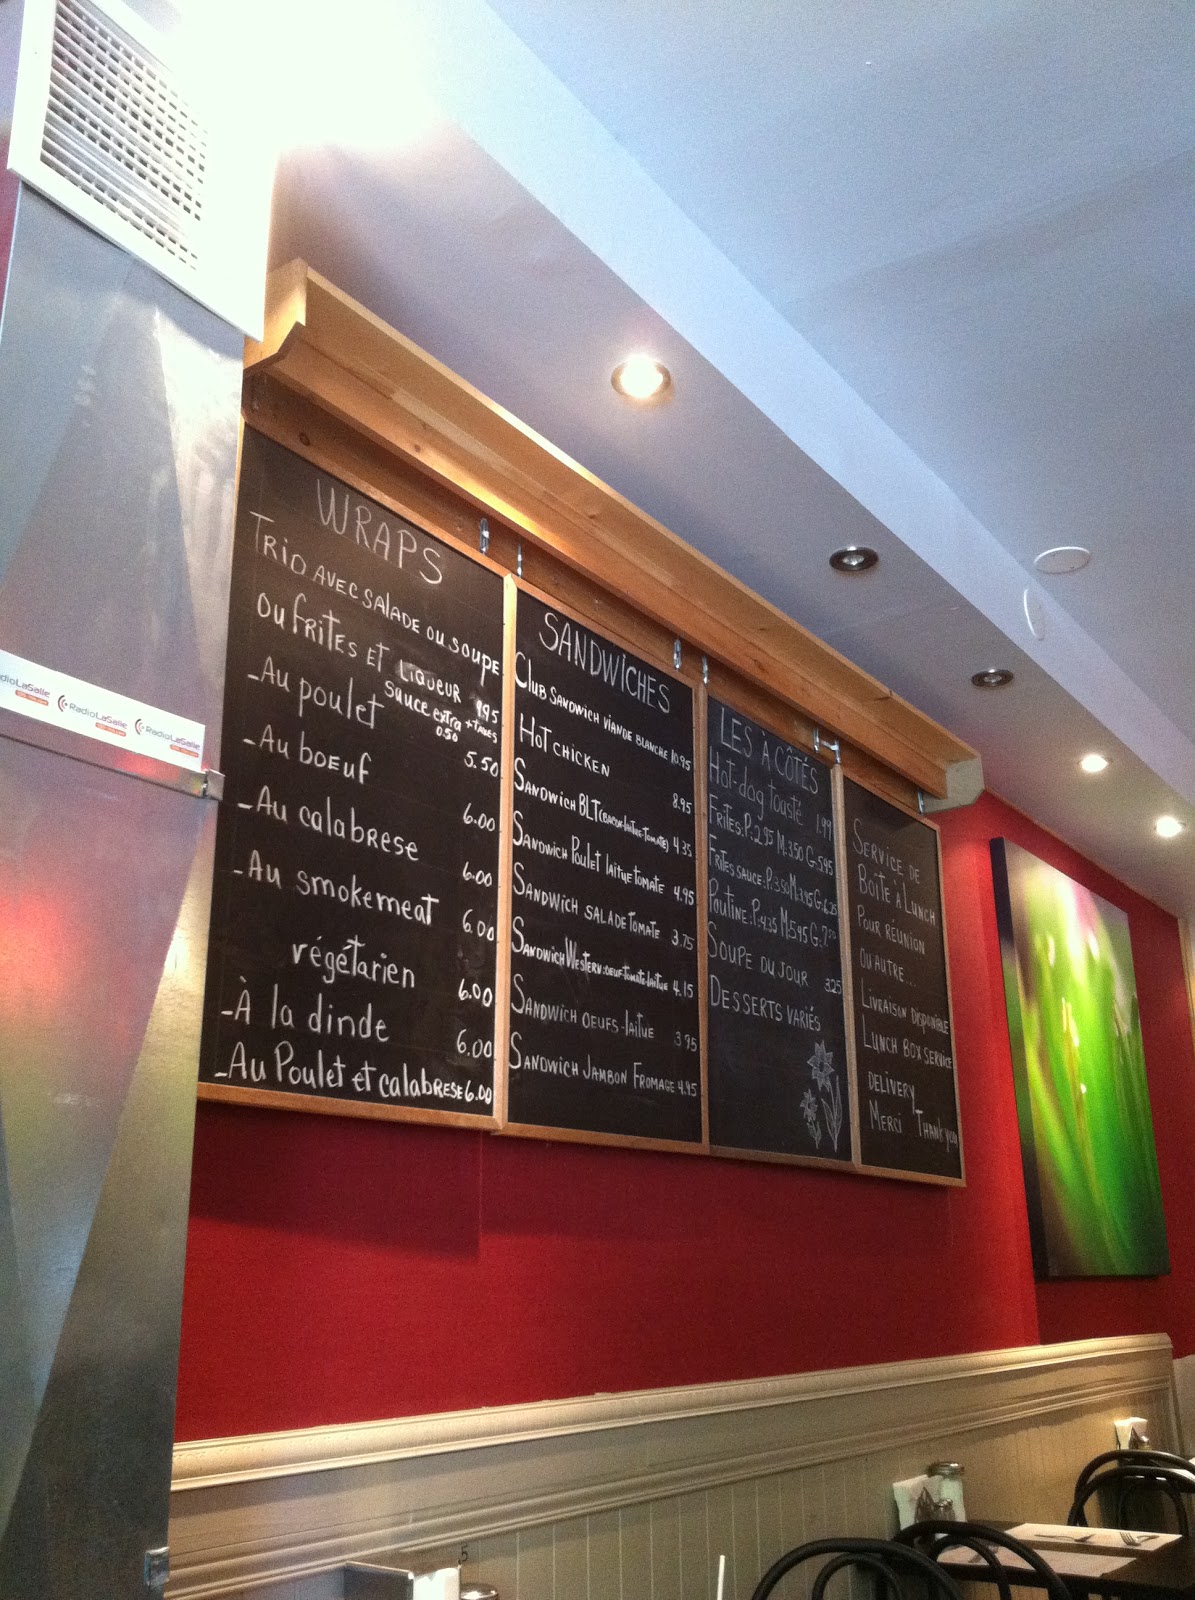 WRAPS
TRIO AVEC SALADE OU SOUPE
OU FRITES ET LIQUEUR 9.95
SAUCE EXTRA 0.50 + TAXES
-Au poulet 5.50
-Au boeuf 6.00
-Au calabrese 6.00
-Au smokemeat 6.00
végétarien 6.00
-À la dinde 6.00
-Au Poulet et calabrese 6.00
SANDWICHES
CLUB SANDWICH VIANDE BLANCHE 10.95
HOT CHICKEN 8.95
SANDWICH BLT (BACON-LAITUE-TOMATE) 4.35
SANDWICH POULET LAITUE TOMATE 4.95
SANDWICH SALADE TOMATE 3.75
SANDWICH WESTERN: OEUF-TOMATE-LAITUE 4.15
SANDWICH OEUFS-LAITUE 3.95
SANDWICH JAMBON FROMAGE 4.95
LES À CÔTÉS
Hot-dog toasté 1.99
FRITES: P: 2.95 M: 3.50 G: 5.95
FRITES SAUCE: P: 3.50 M: 3.95 G: 6.25
Poutine: P: 4.35 M: 5.95 G: 7.50
SOUPE DU JOUR 3.25
DESSERTS VARIÉS
SERVICE DE
BOITE À LUNCH
POUR RÉUNION
OU AUTRE...
LIVRAISON DISPONIBLE
LUNCH BOX SERVICE
DELIVERY
MERCI THANK YOU
dioLaSalle
RadioLaSalle
RadioLaSalle
5